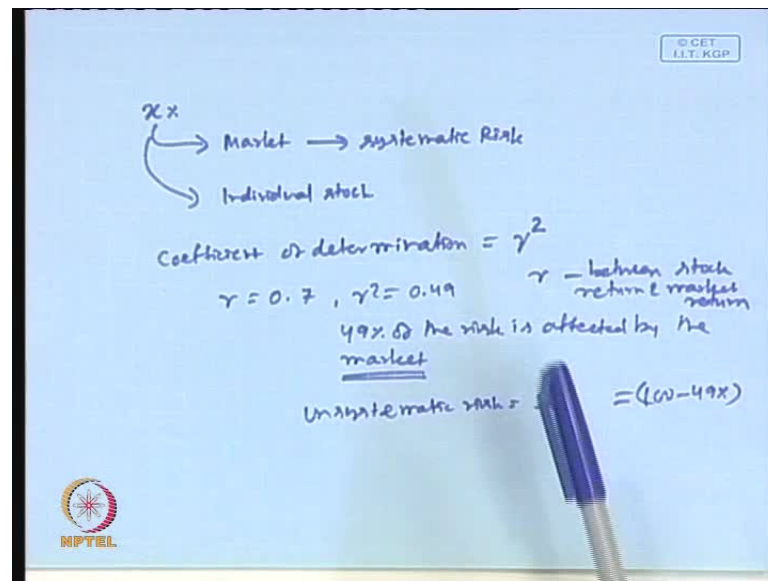 © CET
I.I.T. KGP
x%
Market → systematic Risk
Individual stock
Coefficient of determination = r²
r = 0.7 , r² = 0.49
r – between stock
return & market
return
49% of the risk is affected by the
market
Unsystematic risk =
= (100-49%)
NPTEL